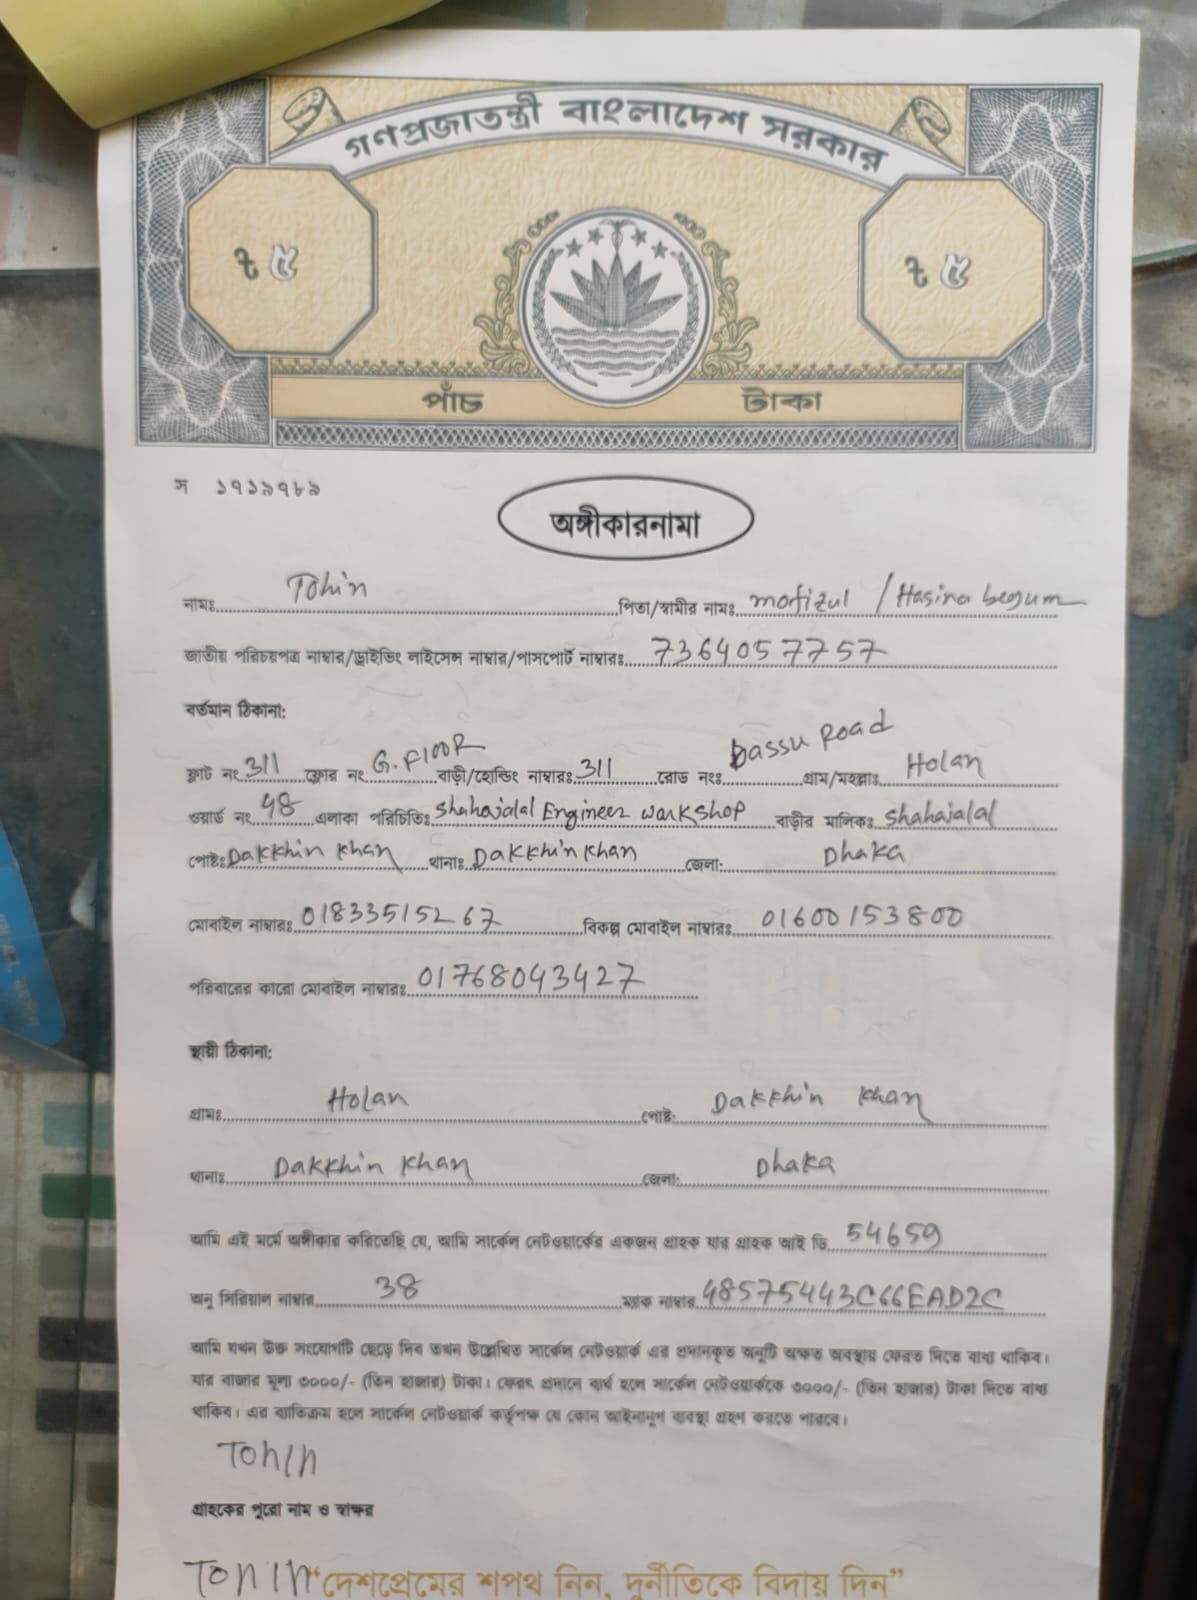 গণপ্রজাতন্ত্রী বাংলাদেশ সরকার
৳ ৫ ৳ ৫
পাঁচ টাকা
স ১৭১৯৭৮৯
অঙ্গীকারনামা
নামঃ Tohin পিতা/স্বামীর নামঃ mofizul / Hasina begum
জাতীয় পরিচয়পত্র নাম্বার/ড্রাইভিং লাইসেন্স নাম্বার/পাসপোর্ট নাম্বারঃ 7364057757
বর্তমান ঠিকানা:
ফ্লাট নং 311 ফ্লোর নং G. Floor বাড়ী/হোল্ডিং নাম্বারঃ 311 রোড নংঃ bassu Road গ্রাম/মহল্লাঃ Holan
ওয়ার্ড নং 48 এলাকা পরিচিতিঃ Shahajalal Engineer workshop বাড়ীর মালিকঃ Shahajalal
পোষ্টঃ Dakkhin Khan থানাঃ Dakkhin Khan জেলা: Dhaka
মোবাইল নাম্বারঃ 01833515267 বিকল্প মোবাইল নাম্বারঃ 01600153800
পরিবারের কারো মোবাইল নাম্বারঃ 01768043427
স্থায়ী ঠিকানা:
গ্রামঃ Holan পোষ্ট: Dakkhin Khan
থানাঃ Dakkhin Khan জেলা: Dhaka
আমি এই মর্মে অঙ্গীকার করিতেছি যে, আমি সার্কেল নেটওয়ার্কের একজন গ্রাহক যার গ্রাহক আই ডি 54659
অনু সিরিয়াল নাম্বার 38 ম্যাক নাম্বার 48575443C66EAD2C
আমি যখন উক্ত সংযোগটি ছেড়ে দিব তখন উল্লেখিত সার্কেল নেটওয়ার্ক এর প্রদানকৃত অনুটি অক্ষত অবস্থায় ফেরত দিতে বাধ্য থাকিব।
যার বাজার মূল্য ৩০০০/- (তিন হাজার) টাকা। ফেরৎ প্রদানে ব্যর্থ হলে সার্কেল নেটওয়ার্ককে ৩০০০/- (তিন হাজার) টাকা দিতে বাধ্য
থাকিব। এর ব্যতিক্রম হলে সার্কেল নেটওয়ার্ক কর্তৃপক্ষ যে কোন আইনানুগ ব্যবস্থা গ্রহণ করতে পারবে।
Tohin
গ্রাহকের পুরো নাম ও স্বাক্ষর
Tohin "দেশপ্রেমের শপথ নিন, দুর্নীতিকে বিদায় দিন"